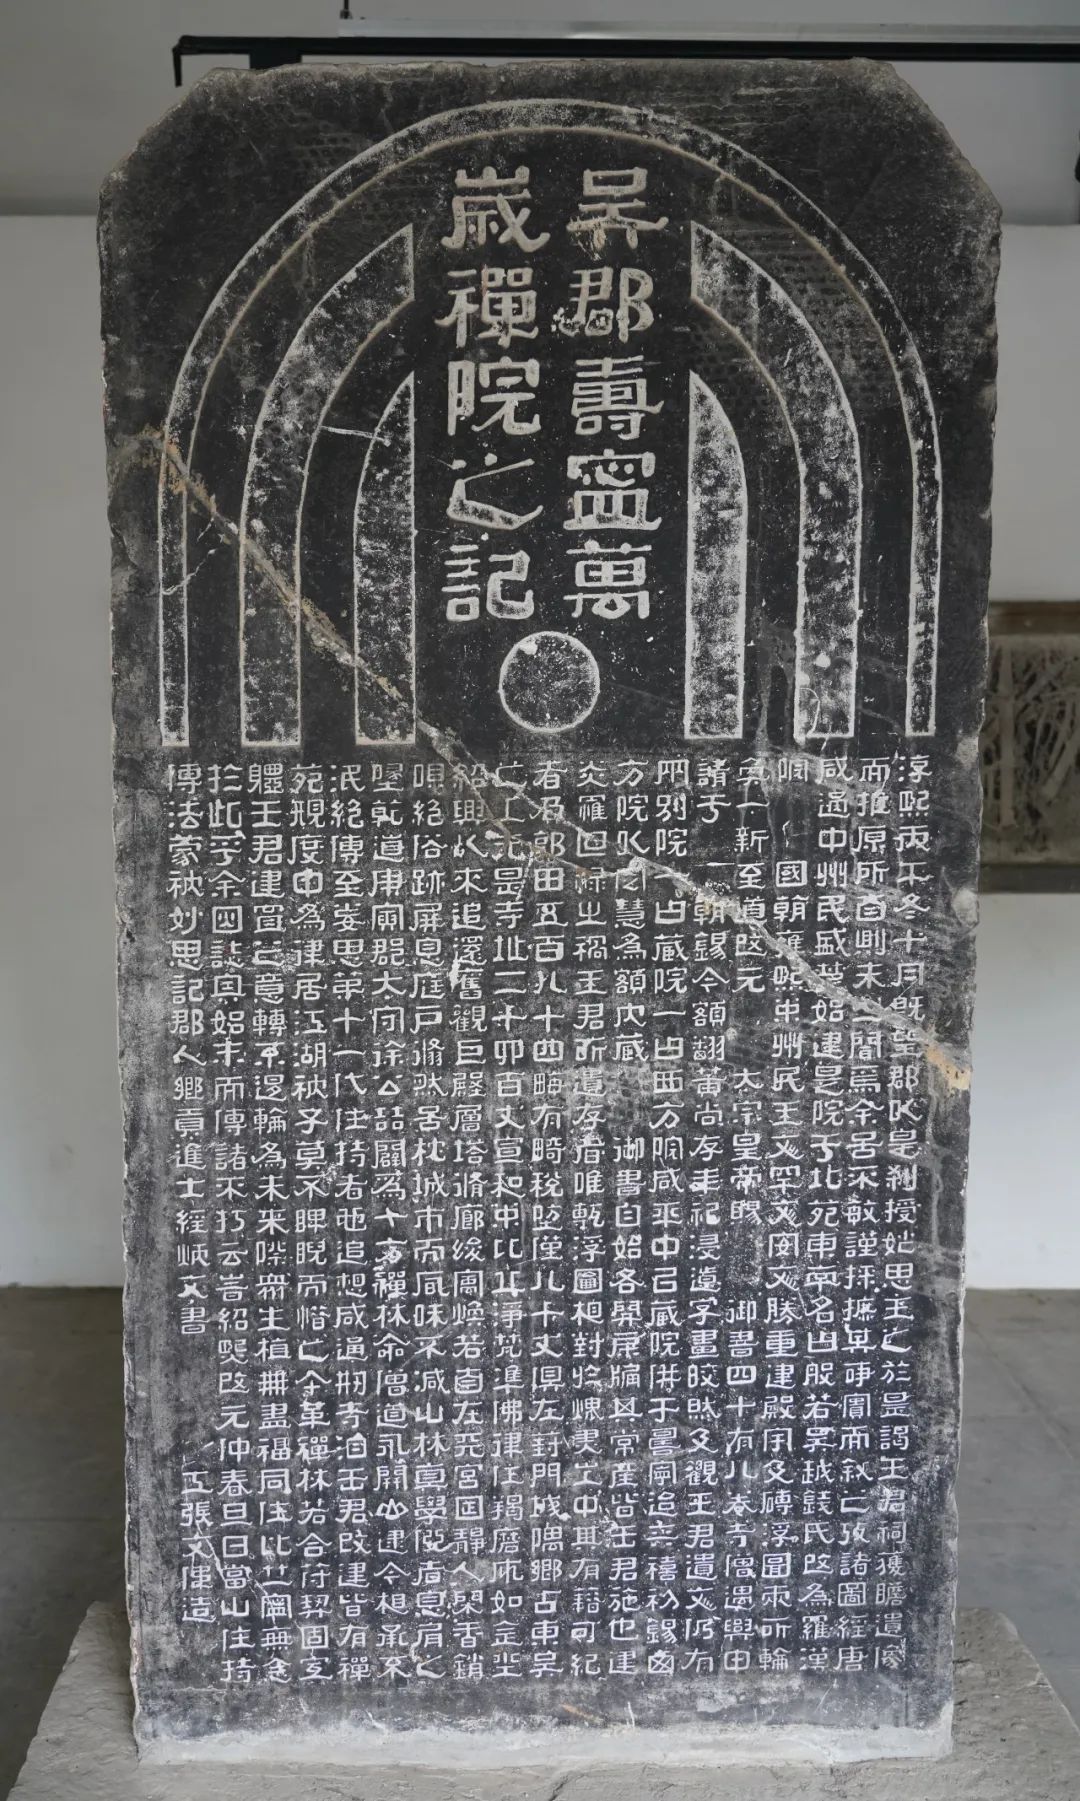 吳郡壽寧萬
歲禪院之記
淳熙丙午冬十月旣望郡以是剎授妙思主之於是謁王君祠獲瞻遺像
而推原所自則未之聞焉余居不敏謹採摭其事實而敘之攷諸圖經唐
咸通中州民盛楚始建是院于北苑東南名曰般若吳越錢氏改爲羅漢
院 國朝雍熙中州民王文罕文安文勝重建殿宇及磚浮圖兩所輪
奐一新至道改元 太宗皇帝賜 御書四十有八卷寺僧遇興申
請于 朝錫今額翻黃尚存年祀浸遠字畫皎然及觀王君遺文仍有
兩別院一曰藏院一曰西方院咸平中已藏院併于壽寧迨天禧初錫西
方院以圓慧為額內藏 御書自始各開屏牖其常產皆王君施也建
炎罹回祿之禍王君所遺存者唯甎浮圖相對中耳有籍可紀
者及郭田五百八十四畮有畸稅僅八十丈俱左封門城隅鄉占東吳
是寺址二千四百丈宣和中比丘淨梵準佛律住羯磨如金
紹興以來追還舊觀巨殿層塔脩廊煥若自在兜宮靜人闃香銷
唄絕俗跡屏息庭戶翛然居枕城市而風味不減山林真學佛者息肩之
乾道庚寅郡太守徐公喆闢為十方禪林命僧道永開山建令相承不
泯絕傳至妙思第十一代住持者也追想咸通剏寺洎王君改建皆有禪
苑規度中為律居江湖衲子莫不睥睨而惜之今革禪林若合符契固宜
軆王君建置之意轉不退輪為未來際眾生植無盡福同住比丘寧無念
於此乎余因誌其始末而傳諸不朽云峕紹熙改元仲春旦日當山住持
傳法蒙衲妙思記郡人鄉貢進士經文書 匠張文偉造